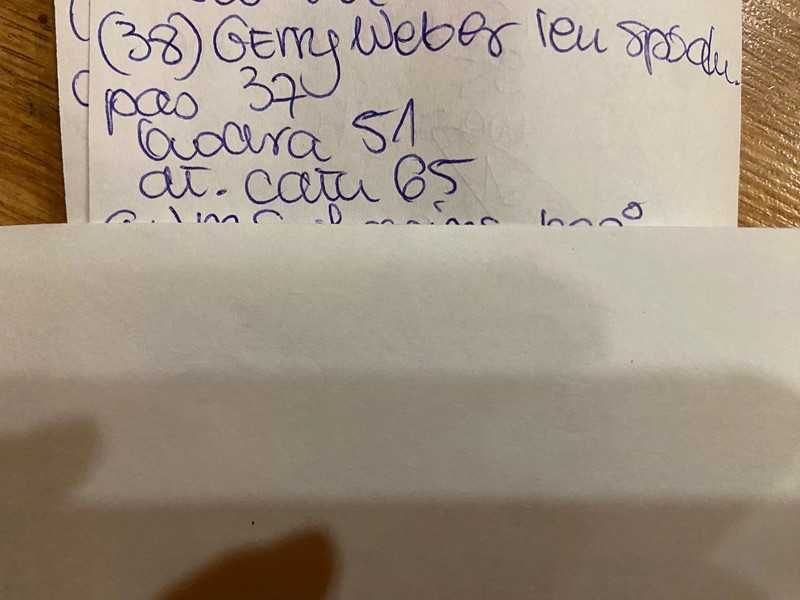 (38) GERRY Weber len spódn.
pas 37
biodra 51
dł. całk 65